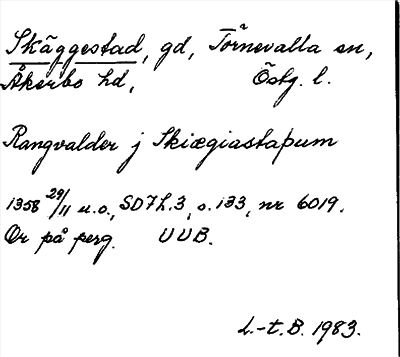 Skäggestad, gd, Törnevalla sn,
Åkerbo hd, Östg. l.
Rangvalder j Skiægiastaþum
1358 29/11 u.o., SD 7 h.3, s. 133, nr 6019.
Or på perg. UUB.
L.-t. B. 1983.